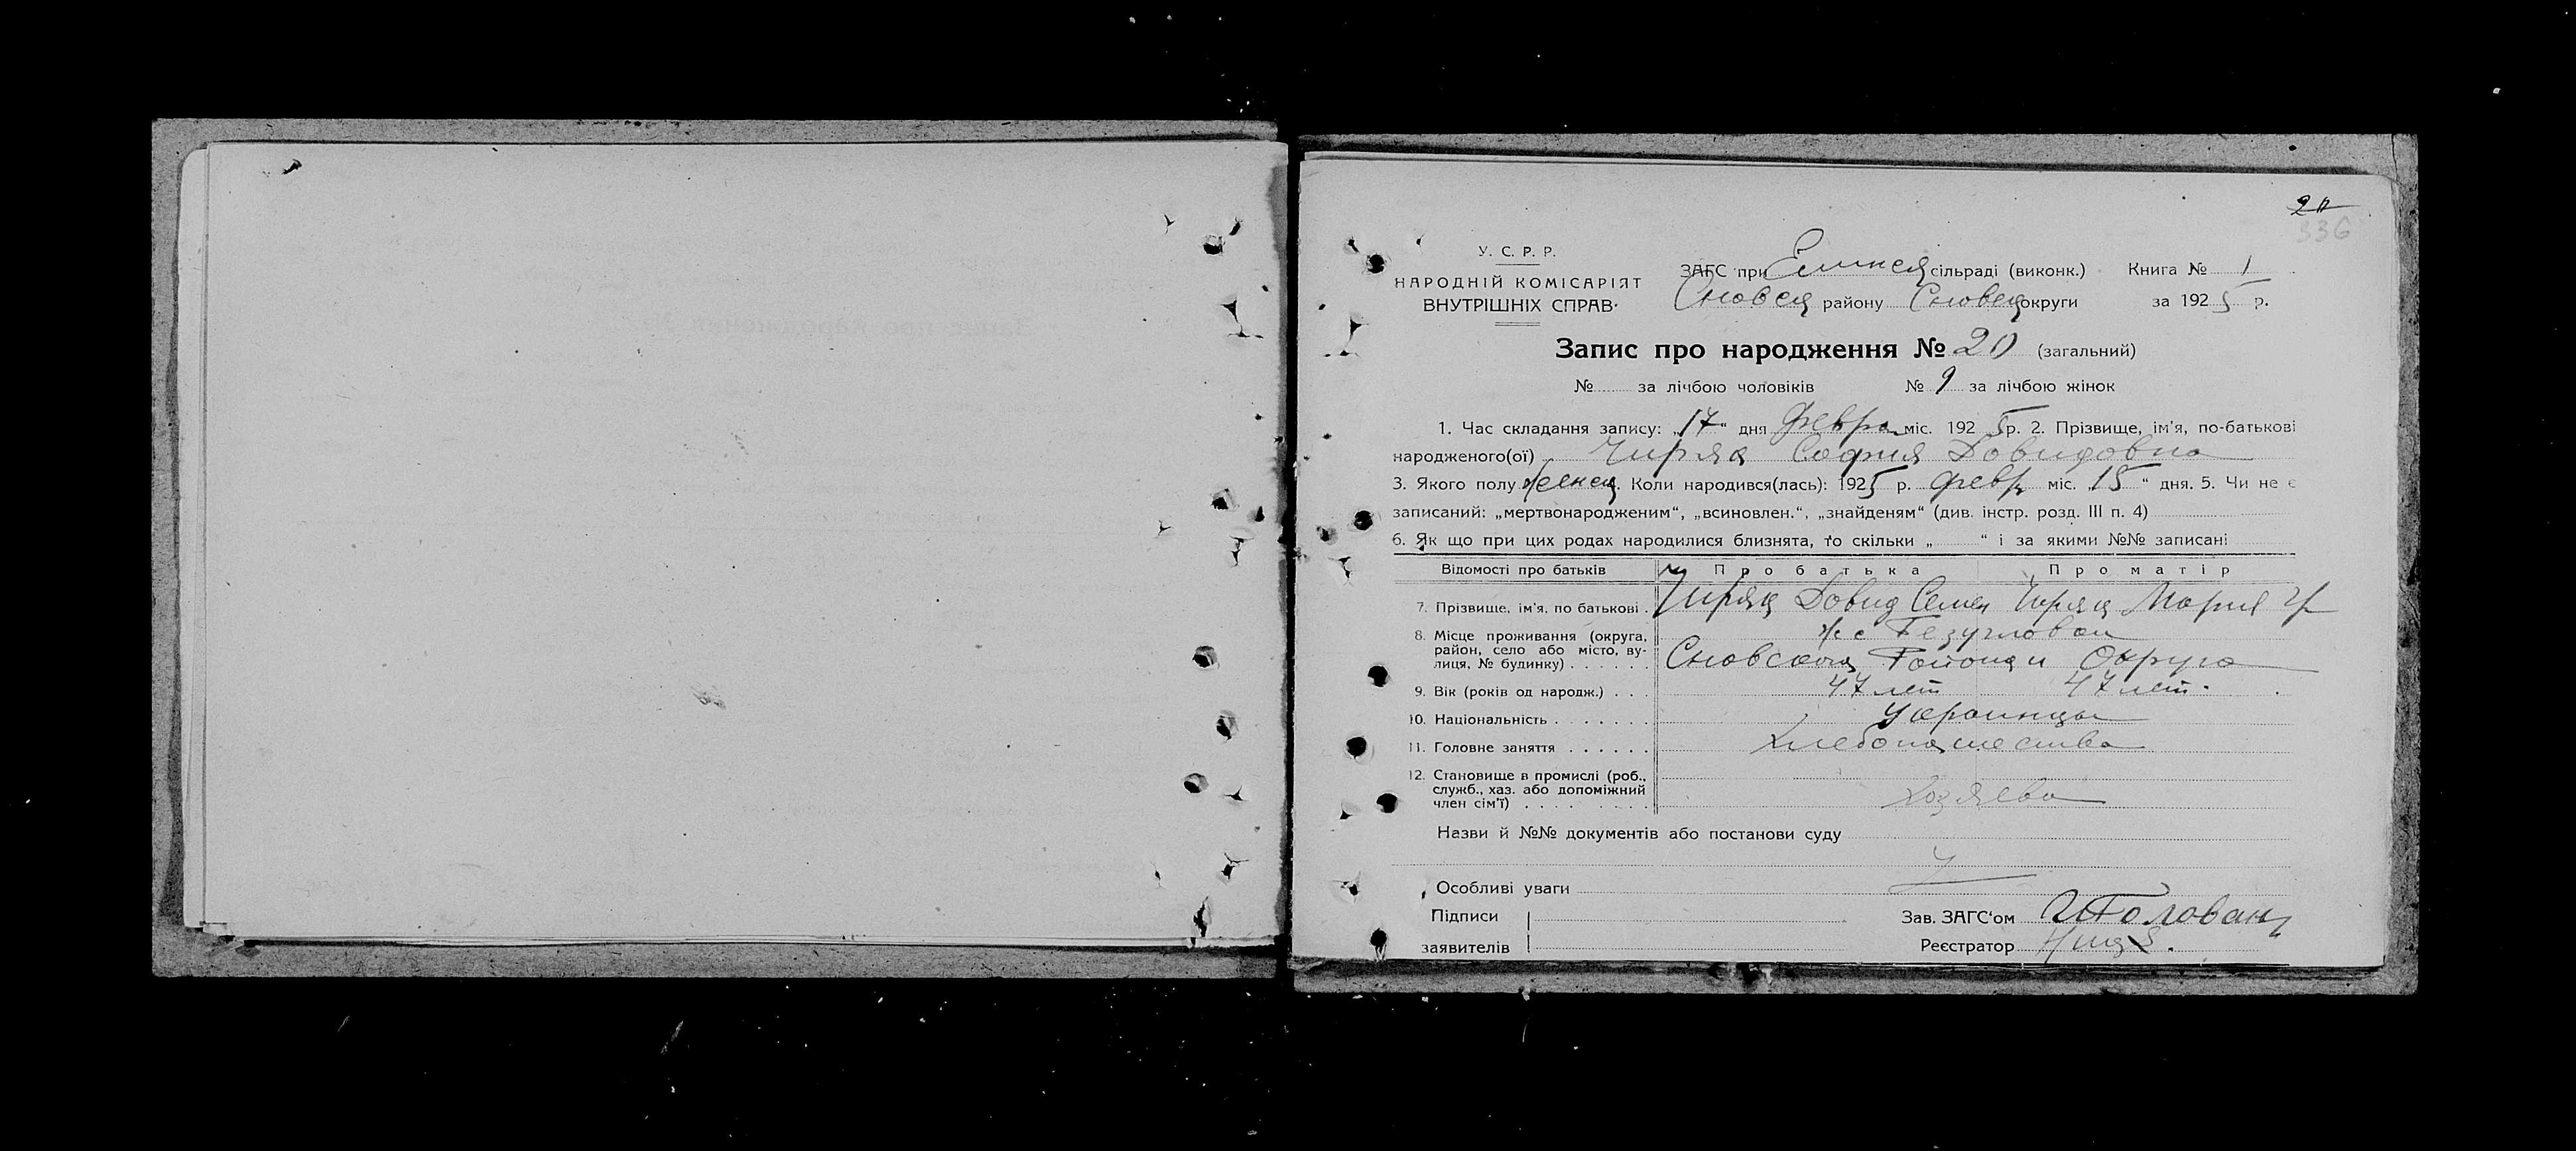 20
336
У. С. Р. Р.
НАРОДНІЙ КОМІСАРІЯТ
ВНУТРІШНІХ СПРАВ
ЗАГС при сільраді (виконк.) Книга № 1
району округи за 1925 р.
Запис про народження № 20 (загальний)
№ за лічбою чоловіків № 9 за лічбою жінок
1. Час складання запису: „17“ дня Февра міс. 1925 р. 2. Прізвище, ім'я, по-батькові
народженого(ої) Чиряк София Довидовна
3. Якого полу женск. Коли народився(лась): 1925 р. февр міс. „15“ дня. 5. Чи не є
записаний: „мертвонародженим“, „всиновлен.“, „знайденям“ (див. інстр. розд. III п. 4)
6. Як що при цих родах народилися близнята, то скільки „ “ і за якими №№ записані
Відомості про батьків Про батька Про матір
7. Прізвище, ім'я, по батькові. Довид Семен Мария Гр
8. Місце проживання (округа,
район, село або місто, ву-
лиця, № будинку) Района и Округа
9. Вік (років од народж.) 47 лет 47 лет.
10. Національність Украинцы
11. Головне заняття Хлебопашества
12. Становище в промислі (роб.,
служб., хаз. або допоміжний
член сім'ї) Хозяева
Назви й №№ документів або постанови суду
Особливі уваги
Підписи
заявителів
Зав. ЗАГС'ом
Реєстратор